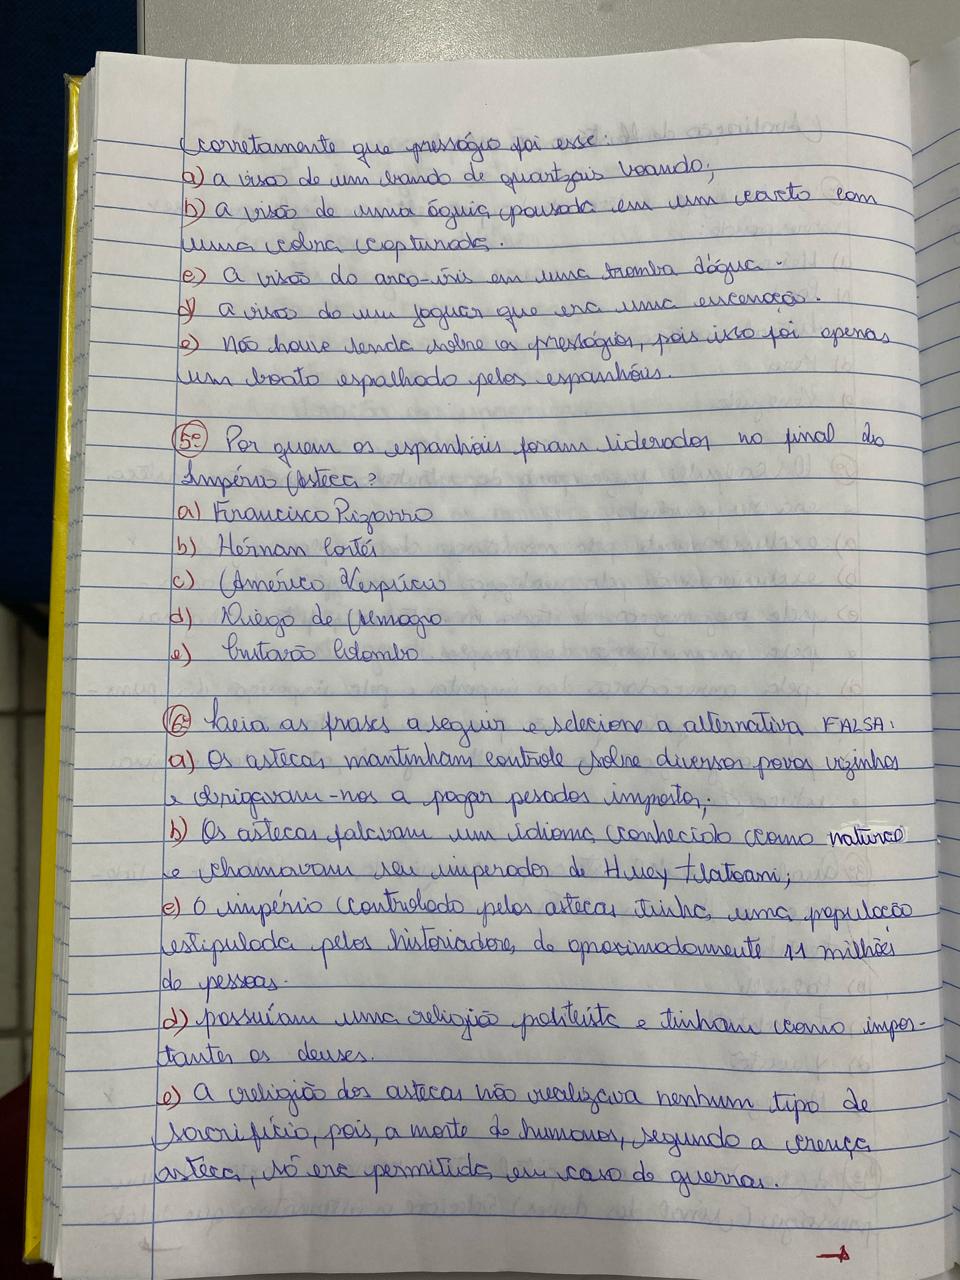 corretamente que presságio foi esse:
a) a visão de um bando de quartzais voando;
b) a visão de uma águia pousada em um cacto com
uma cobra capturada.
c) a visão do arco-íris em uma tromba d'água.
d) a visão de um jaguar que era uma encenação.
e) não houve lenda sobre os presságios, pois isso foi apenas
um boato espalhado pelos espanhóis.
5º Por quem os espanhóis foram liderados no final do
Império Asteca?
a) Francisco Pizarro
b) Hérnan Cortés
c) Américo Vespúcio
d) Diego de Almagro
e) Cristovão Colombo.
6º Leia as frases a seguir e selecione a alternativa FALSA:
a) Os astecas mantinham controle sobre diversos povos vizinhos
e obrigavam-nos a pagar pesados impostos;
b) Os astecas falavam um idioma conhecido como
e chamavam seu imperador de Huey tlatoani;
c) O império controlado pelos astecas tinha uma população
estipulada pelos historiadores de aproximadamente 11 milhões
de pessoas.
d) possuíam uma religião politeísta e tinham como impor-
tantes os deuses.
e) A religião dos astecas não realizava nenhum tipo de
sacrifício, pois, a morte de humanos, segundo a crença
asteca, só era permitida em caso de guerras.